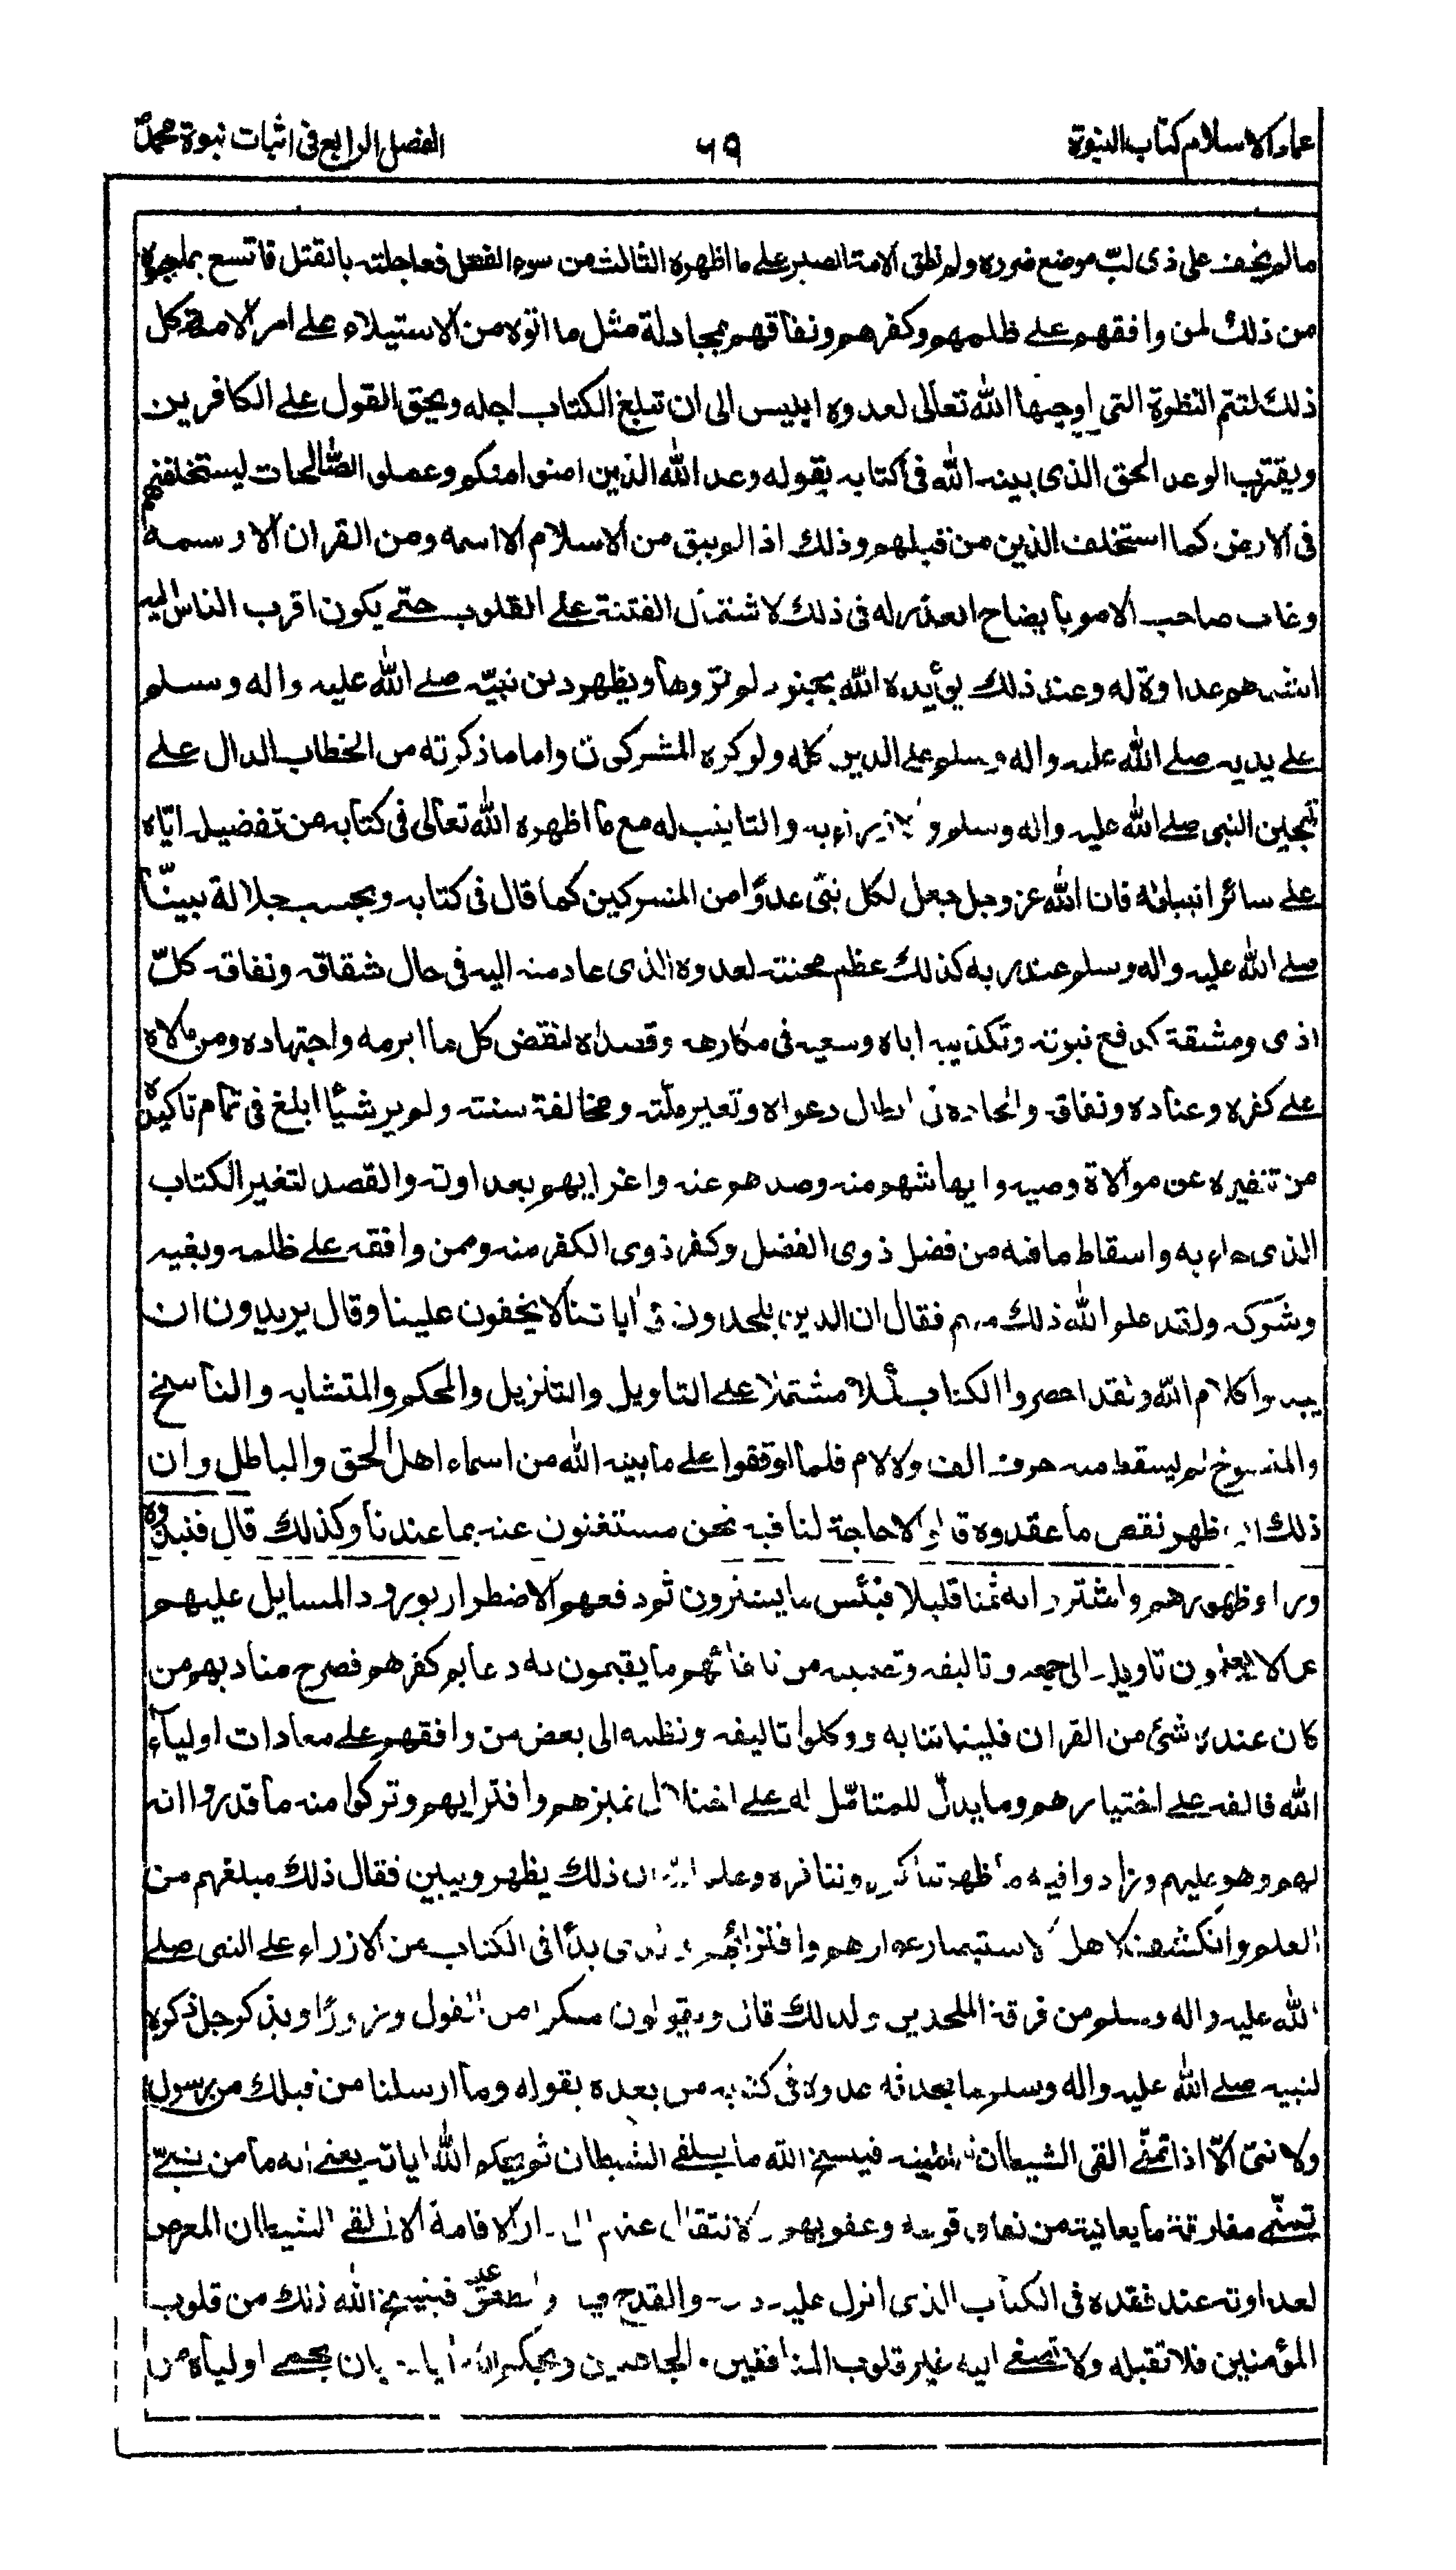 عماد الاسلام كتاب النبوة ٦٩ الفصل الرابع فى اثبات نبوة محمدؐ
ما لم يخف على ذى لبّ موضع ضرره ولم تطق الامة الصبر على ما اظهره الثالث من سوء الفعل فعاجلته بالقتل فاتسع بما جره
من ذلك لمن وافقهم على ظلمهم وكفرهم ونفاقهم بمجادلة مثل ما اتوه من الاستيلاء على امر الامة كل
ذلك لتتم النظرة التى اوجبها الله تعالى لعدوه ابليس الى ان تبلغ الكتاب اجله ويحق القول على الكافرين
ويقترب الوعد الحق الذى بينه الله فى كتابه بقوله وعد الله الذين امنوا منكم وعملوا الصالحات ليستخلفنهم
فى الارض كما استخلف الذين من قبلهم وذلك اذا لم يبق من الاسلام الا اسمه ومن القران الا رسمه
وغاب صاحب الامر بايضاح العذر له فى ذلك لاشتمال الفتنة على القلوب حتى يكون اقرب الناس اليه
اشدهم عداوة له وعند ذلك يؤيده الله بجنود لم تروها ويظهر دين نبيّه صلى الله عليه واله وسلم
على يديه صلى الله عليه واله وسلم على الدين كله ولو كره المشركون واما ما ذكرته من الخطاب الدال على
تهجين النبى صلى الله عليه واله وسلم والازراء به والتانيب له مع ما اظهره الله تعالى فى كتابه من تفضيله ايّاه
على سائر انبيائه فان الله عز وجل جعل لكل نبىّ عدوّا من المشركين كما قال فى كتابه وبحسب جلالة نبيّنا
صلى الله عليه واله وسلم عند ربه كذلك عظم محنته لعدوه الذى عاد منه اليه فى حال شقاقه ونفاقه كلّ
اذى ومشقة لدفع نبوته وتكذيبه اياه وسعيه فى مكارهه وقصده لنقض كل ما ابرمه واجتهاده ومن مالاه
على كفره وعناده ونفاقه والحاده فى ابطال دعواه وتغير ملّته ومخالفة سنته ولم ير شيئا ابلغ فى تمام تاكيده
من تنفيره عن موالاة وصيه وايحاشهم منه وصدهم عنه واغرايهم بعداوته والقصد لتغير الكتاب
الذى جاء به واسقاط ما فيه من فضل ذوى الفضل وكفر ذوى الكفر منه وممن وافقه على ظلمه وبغيه
وشركه ولقد علم الله ذلك منهم فقال ان الذين يلحدون فى اياتنا لا يخفون علينا وقال يريدون ان
يبدلوا كلام الله ولقد احضروا الكتاب كملا مشتملا على التاويل والتنزيل والمحكم والمتشابه والناسخ
والمنسوخ لم يسقط منه حرف الف ولا لام فلما وقفوا على ما بينه الله من اسماء اهل الحق والباطل وان
ذلك ان ظهر نقص ما عقدوه قالوا لا حاجة لنا فيه نحن مستغنون عنه بما عندنا وكذلك قال فنبذوه
وراء ظهورهم واشتروا به ثمنا قليلا فبئس ما يشترون ثم دفعهم الاضطرار بورود المسايل عليهم
عما لا يعلمون تاويله الى جمعه وتاليفه وتضمينه من تلقائهم ما يقيمون به دعايم كفرهم فصرح مناديهم من
كان عنده شئ من القران فلياتنا به ووكلوا تاليفه ونظمه الى بعض من وافقهم على معادات اولياء
الله فالفه على اختيارهم وما يدلّ للمتامّل له على اختلال تميزهم وافترايهم وتركوا منه ما قدروا انه
لهم وهو عليهم وزادوا فيه ما ظهر تناكره وتنافره وعلم الله ان ذلك يظهر ويبين فقال ذلك مبلغهم من
العلم وانكشف لاهل الاستبصار عوارهم وافترائهم والذى بدأ فى الكتاب من الازراء على النبى صلى
الله عليه واله وسلم من فرقة الملحدين ولذلك قال ويقولون منكرا من القول وزورًا ويذكر جل ذكره
لنبيه صلى الله عليه واله وسلم ما يحدثه عدوه فى كتابه من بعده بقوله وما ارسلنا من قبلك من رسول
ولا نبىّ الّا اذا تمنّى القى الشيطان فى امنيته فينسخ الله ما يلقى الشيطان ثم يحكم الله اياته يعنى انه ما من نبىّ
تمنّى مفارقة ما يعانيه من نفاق قومه وعقوبهم والانتقال عنهم الى دار الاقامة الا القى الشيطان المعرض
لعداوته عند فقده فى الكتاب الذى انزل عليه ذمه والقدح فيه والطعن عليه فينسخ الله ذلك من قلوب
المؤمنين فلا تقبله ولا تصغى اليه غير قلوب المنافقين والجاهلين ويحكم الله اياته بان يحمى اولياءه من